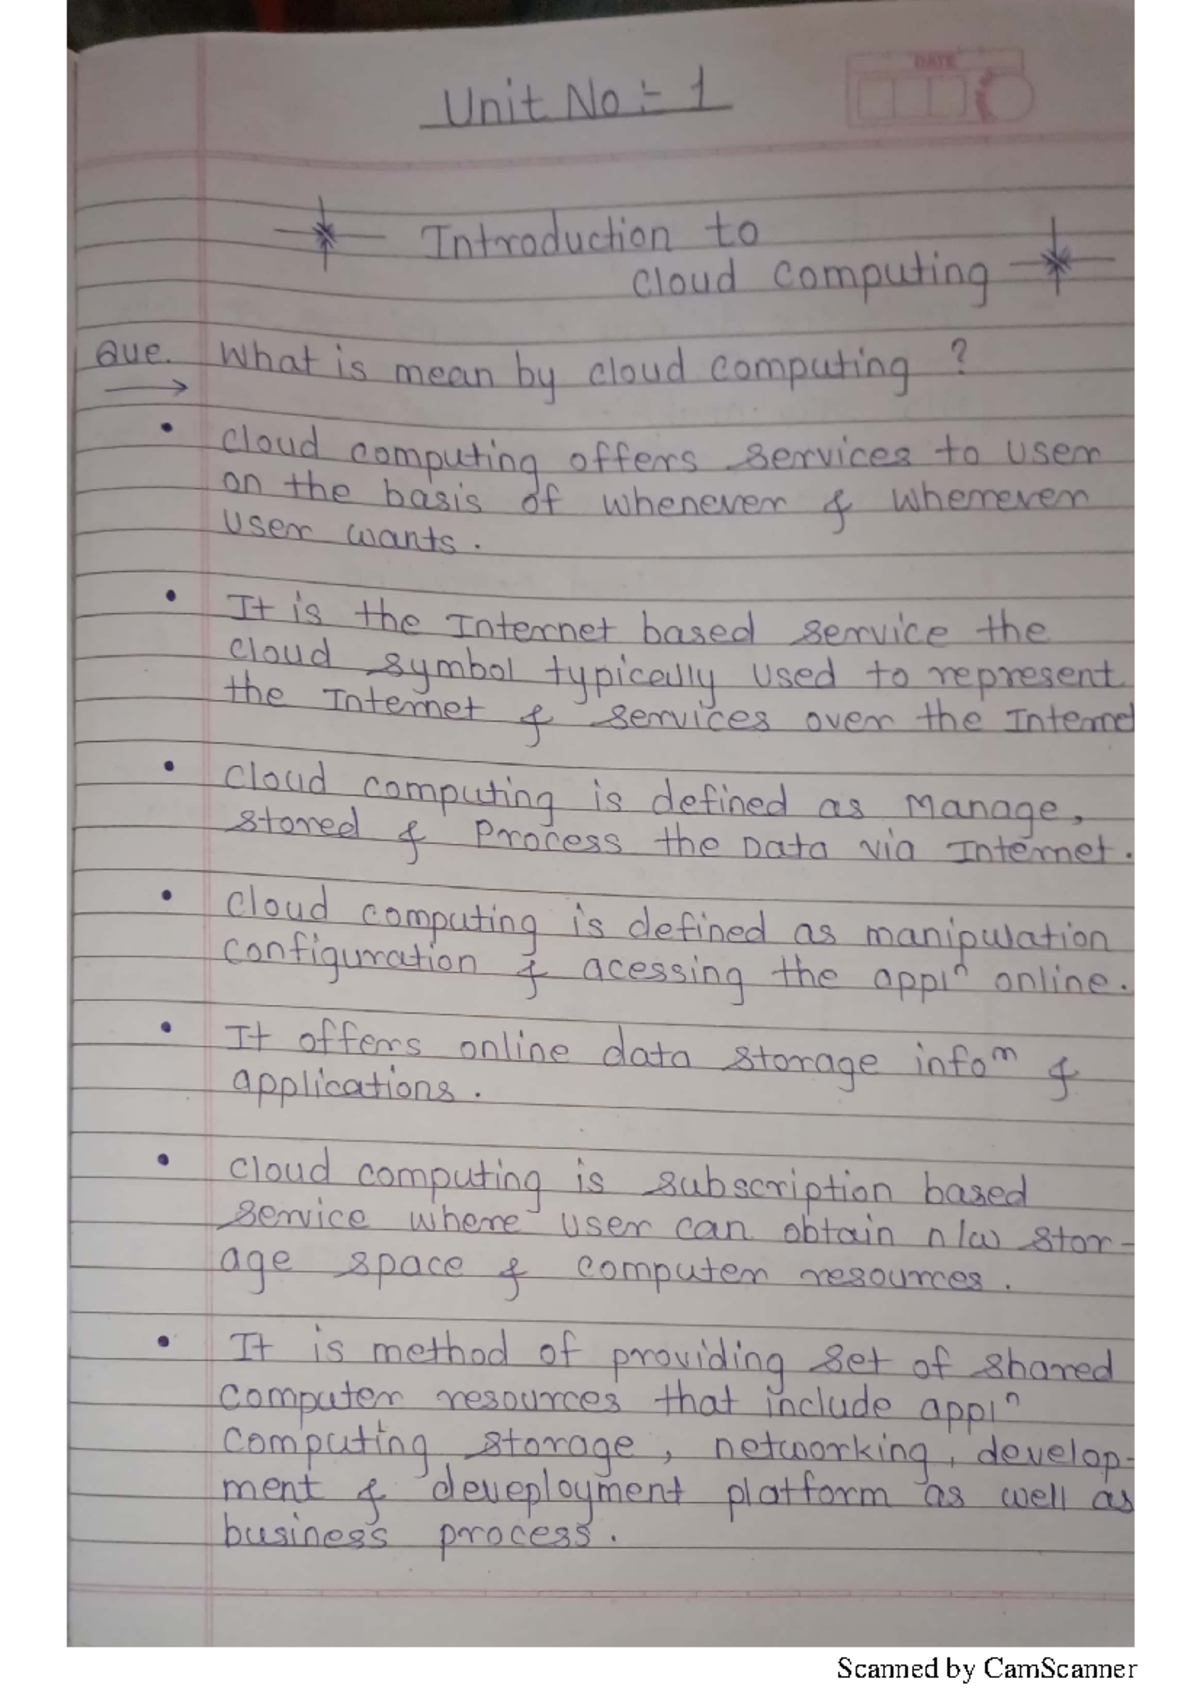 DATE
Unit No :- 1
Introduction to
cloud computing
Que. What is mean by cloud computing ?
• cloud computing offers services to user
on the basis of whenever & wherrever
user wants.
• It is the Internet based service the
cloud symbol typically used to represent
the Internet & services over the Internet
• cloud computing is defined as Manage,
stored & Process the Data via Internet.
• cloud computing is defined as manipulation
configuration & acessing the applⁿ online.
• It offers online data storage infoᵐ &
applications.
• cloud computing is subscription based
service where user can obtain n/w stor-
age space & computer resources.
• It is method of providing set of shared
computer resources that include applⁿ
computing storage, networking, develop-
ment & deveployment platform as well as
business process.
Scanned by CamScanner